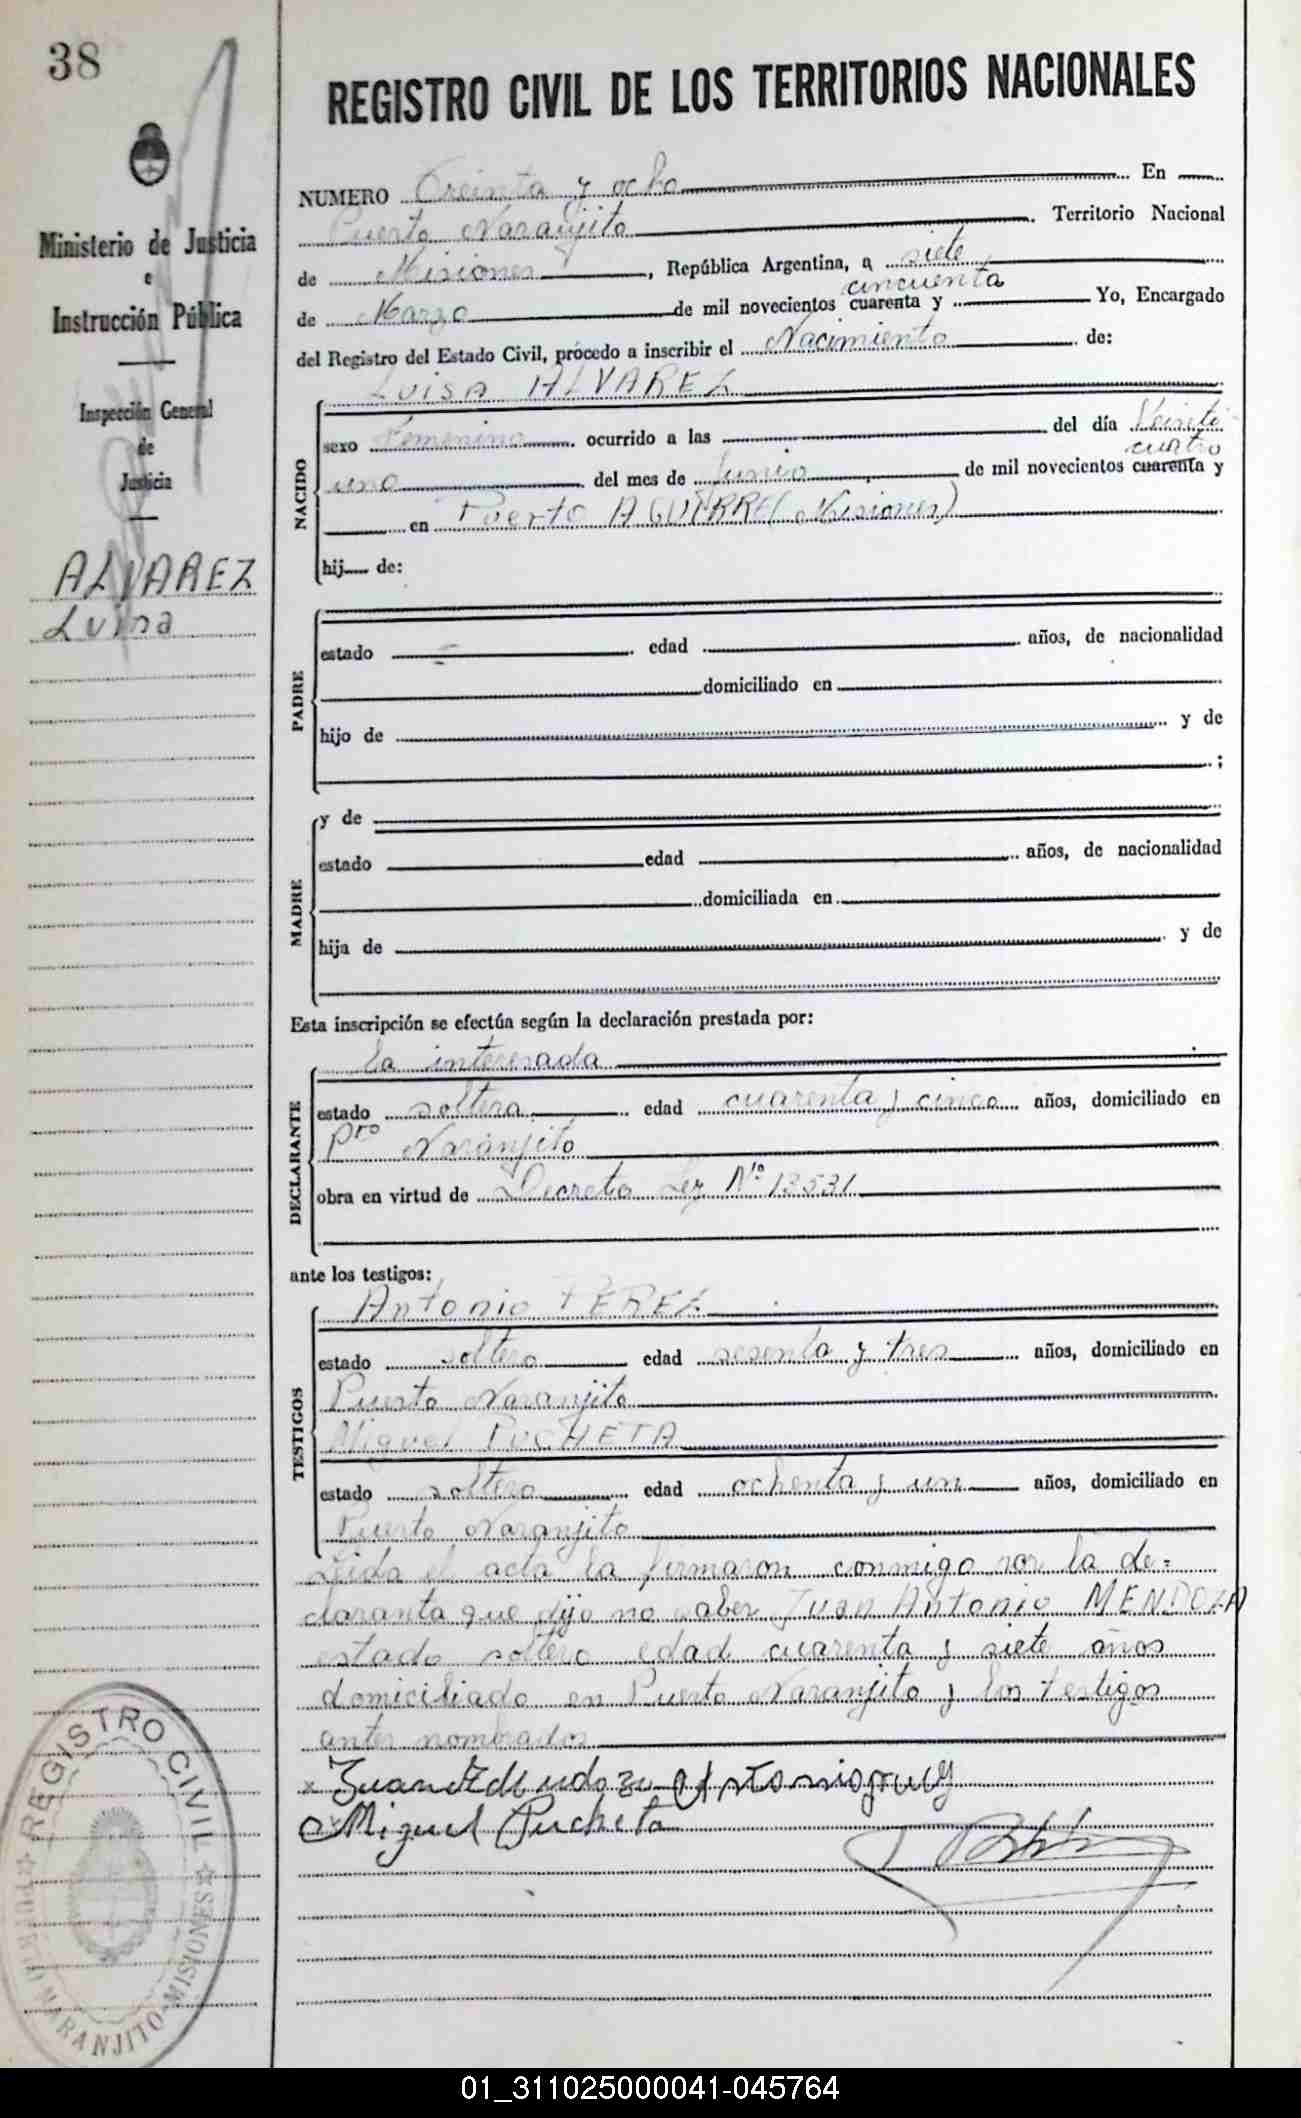 38
Ministerio de Justicia
e
Instrucción Pública
Inspección General
de
Justicia
ALVAREZ
Luisa
REGISTRO CIVIL DE LOS TERRITORIOS NACIONALES
NUMERO Treinta y ocho En
Puerto Naranjito Territorio Nacional
de Misiones, República Argentina, a siete
cincuenta
de Marzo de mil novecientos cuarenta y Yo, Encargado
del Registro del Estado Civil, procedo a inscribir el Nacimiento de:
NACIDO
Luisa ALVAREZ
sexo Femenino ocurrido a las del día Veinti
cuatro
uno del mes de Junio de mil novecientos cuarenta y
en Puerto AGUIRRE (Misiones)
hij de:
PADRE
estado edad años, de nacionalidad
domiciliado en
hijo de y de
;
MADRE
y de
estado edad años, de nacionalidad
domiciliada en
hija de y de
Esta inscripción se efectúa según la declaración prestada por:
DECLARANTE
la interesada
estado soltera edad cuarenta y cinco años, domiciliado en
Pto Naranjito
obra en virtud de Decreto Ley Nº 13531
ante los testigos:
TESTIGOS
Antonio PEREZ
estado soltero edad sesenta y tres años, domiciliado en
Puerto Naranjito
Miguel PUCHETA
estado soltero edad ochenta y un años, domiciliado en
Puerto Naranjito
Leida el acta la firmaron conmigo por la de=
claranta que dijo no saber Juan Antonio MENDOZA
estado soltero edad cuarenta y siete años
domiciliado en Puerto Naranjito y los testigos
antes nombrados
x Juan
Miguel Pucheta
REGISTRO CIVIL
PUERTO NARANJITO - MISIONES
01_311025000041-045764